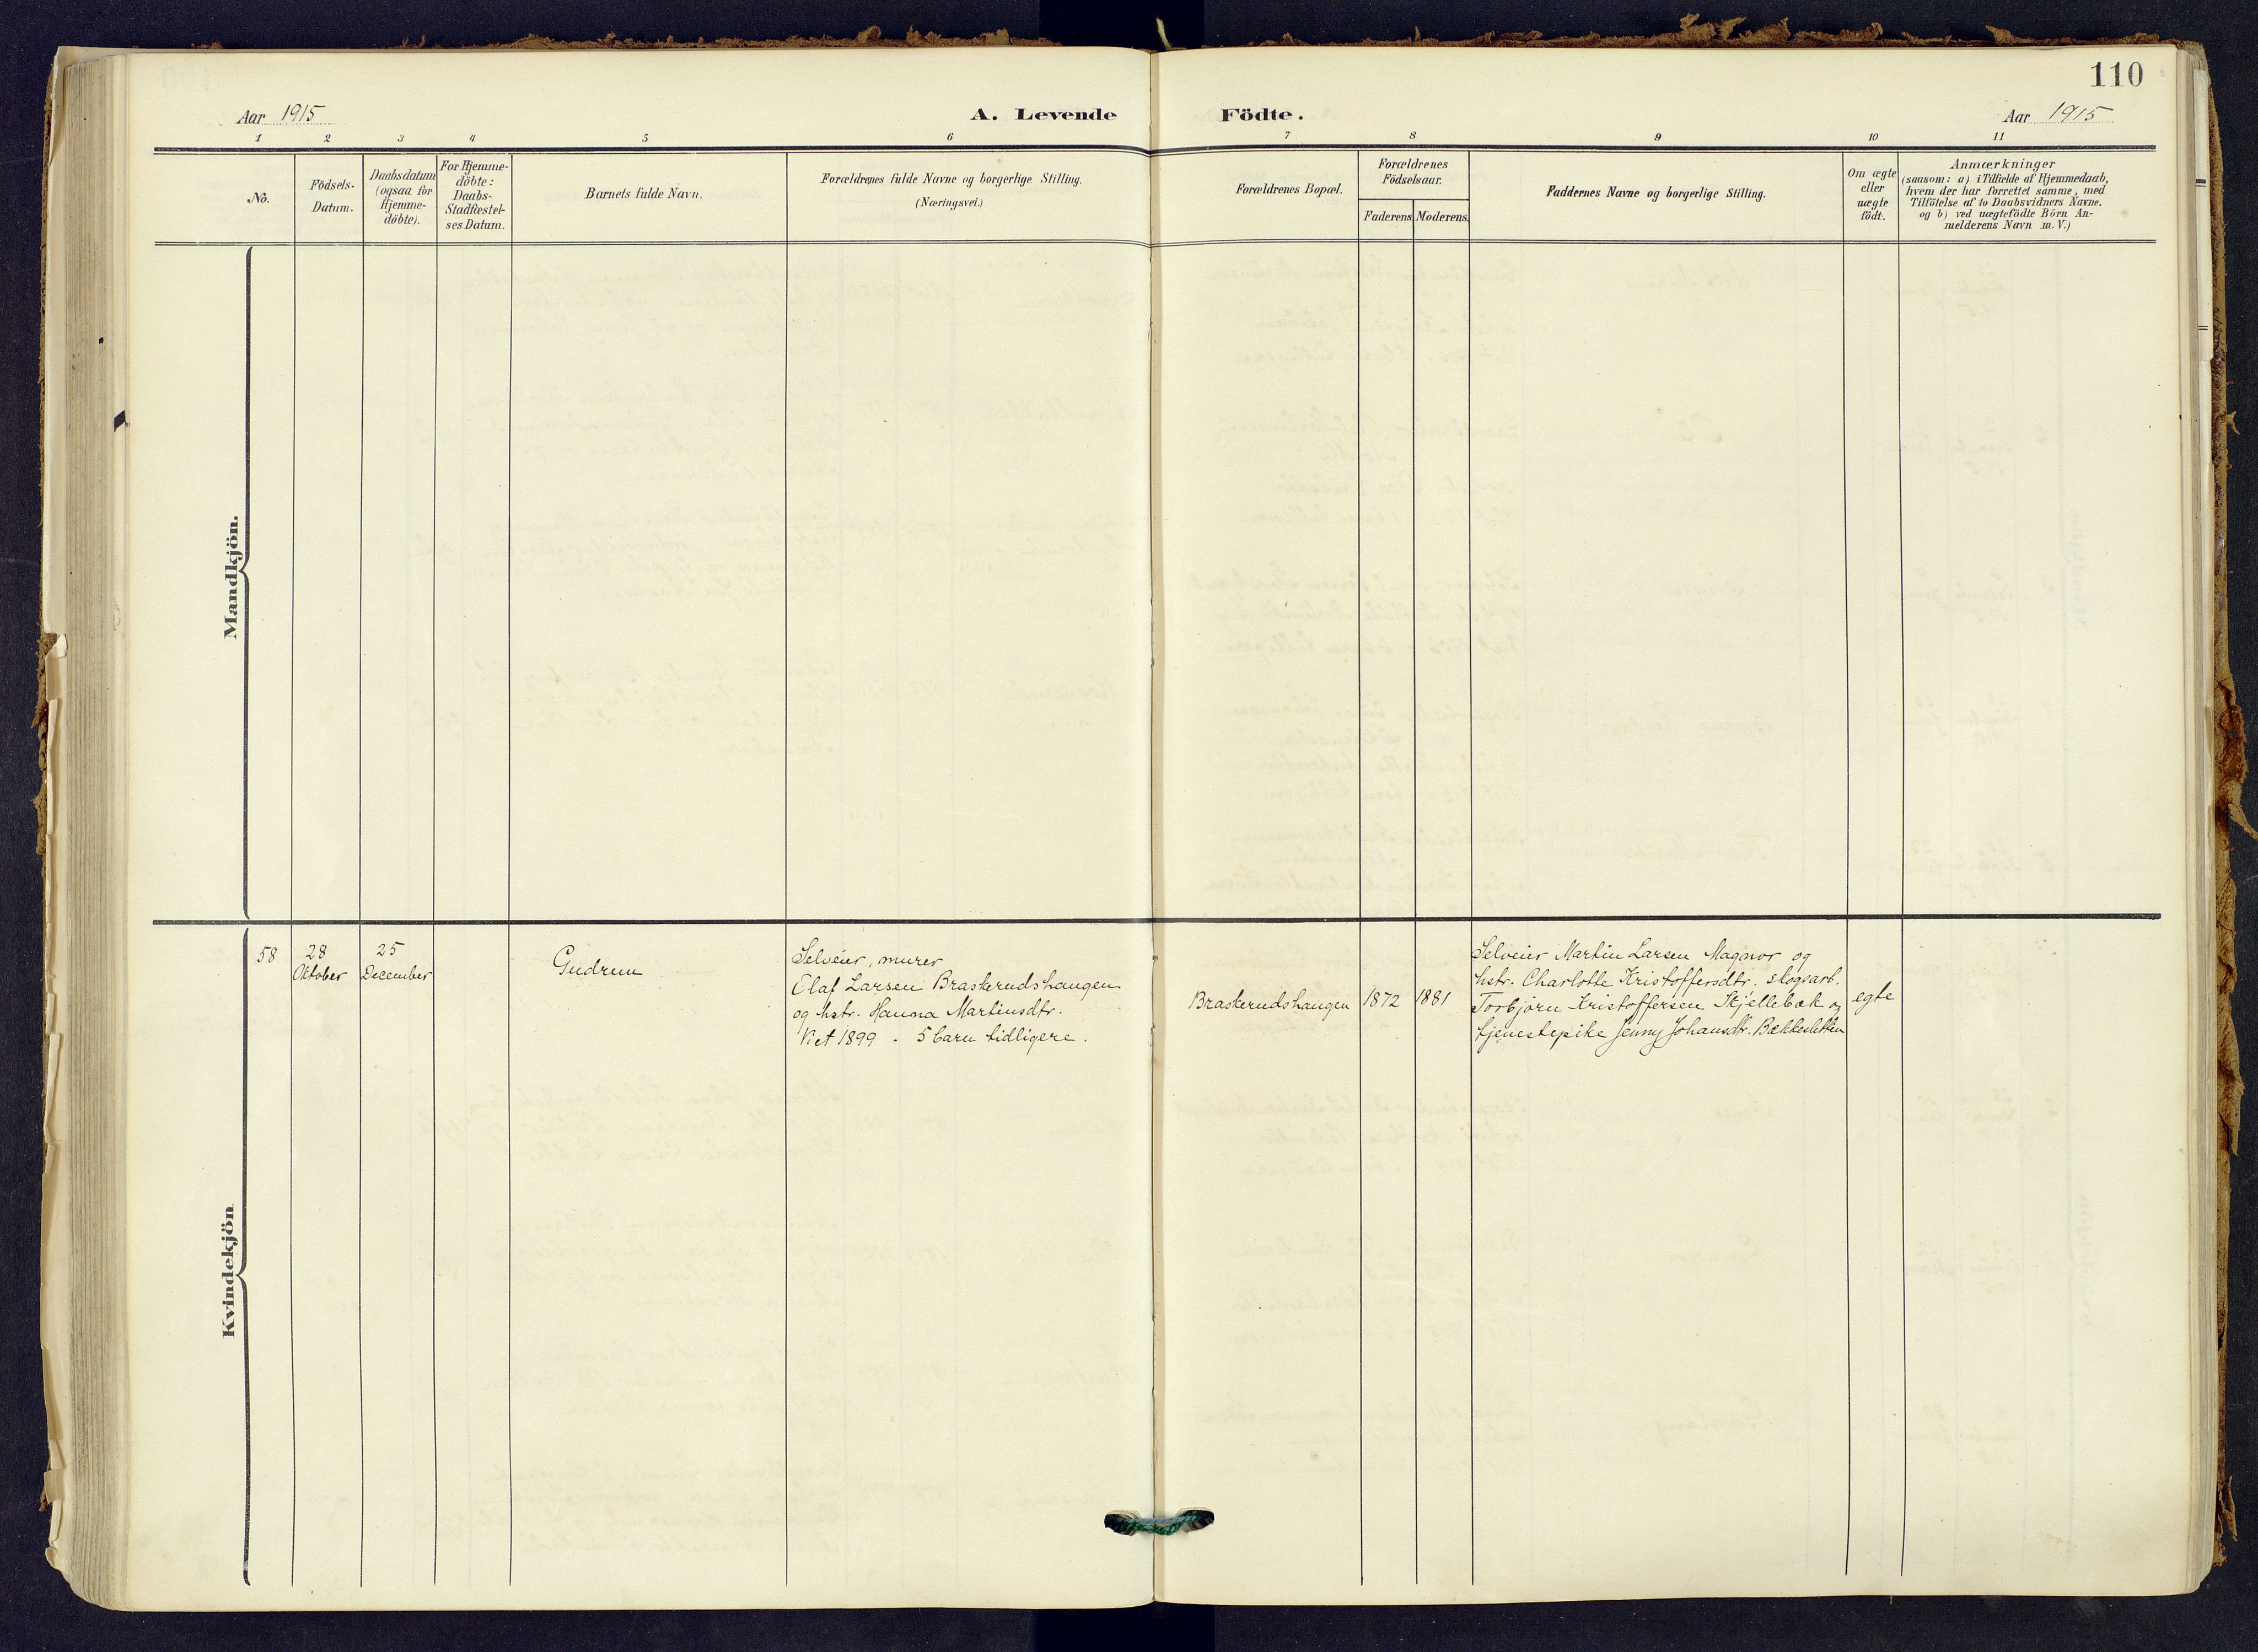 110
Aar 1915
A. Levende Födte.
Aar 1915
1 2 3 4 5 6 7 8 9 10 11
No.
Födsels-
Datum.
Daabsdatum
(ogsaa for
Hjemme-
döbte).
For Hjemme-
döbte:
Daabs-
Stadfæstel-
ses Datum.
Barnets fulde Navn.
Forældrenes fulde Navne og borgerlige Stilling.
(Næringsvei.)
Forældrenes Bopæl.
Forældrenes
Födselsaar.
Faderens
Moderens.
Faddernes Navne og borgerlige Stilling.
Om ægte
eller
uægte
födt.
Anmærkninger
(saasom: a) i Tilfælde af Hjemmedaab,
hvem der har forrettet samme, med
Tilföielse af to Daabsvidners Navne.
og b) ved uægtefödte Börn An-
melderens Navn m. V.)
Mandkjön.
Kvindekjön
58
28
Oktober
25
December
Gudrun
Selveier, murer
Olaf Larsen Braskerudshaugen
og hstr. Hanna Martinsdtr.
Viet 1899 . 5 barn tidligere.
Braskerudshaugen
1872
1881
Selveier Martin Larsen Magnor og
hstr. Charlotte Kristoffersdtr. skogsarb.
Torbjörn Kristoffersen Skjellebæk og
tjenestepike Jenny Johansdtr. Bækkesletten
egte